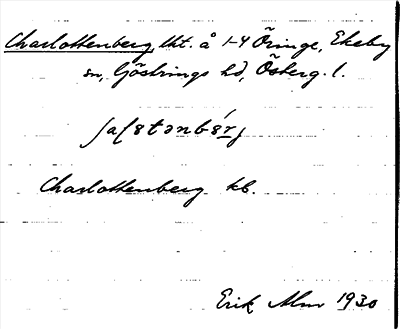 Charlottenberg, lht. å 1-4 Öringe, Ekeby
sn, Göstrings hd, Österg. l.
Charlottenberg kb.
Erik Alm 1930